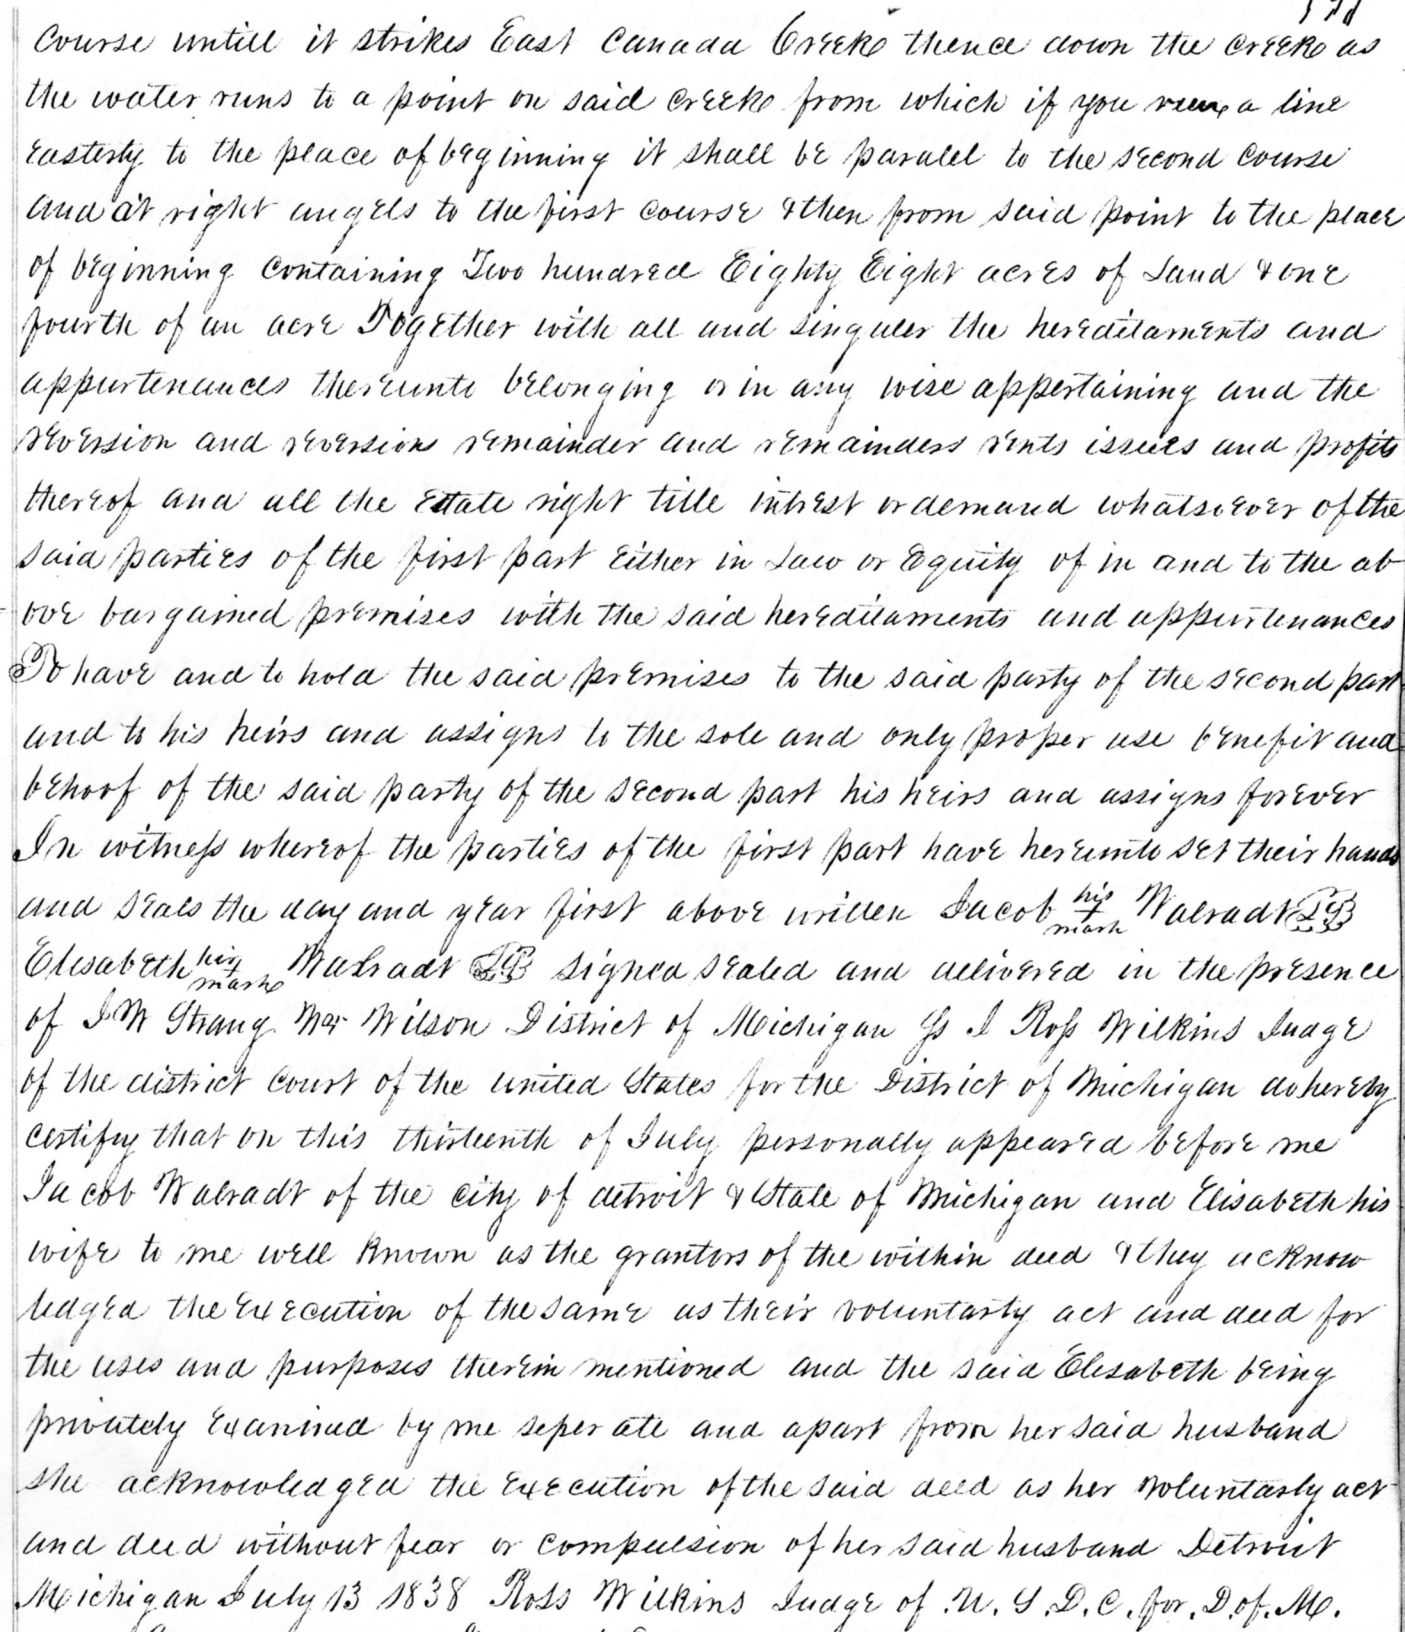 course untill it strikes East Canada Creek thence down the creek as
the water runs to a point on said creek from which if you run a line
easterly to the place of beginning it shall be paralel to the second course
and at right angels to the first course & then from said point to the place
of beginning containing Two hundred Eighty Eight acres of Land & one
fourth of an acre Together with all and singuler the hereditaments and
appurtenances thereunto belonging or in any wise appertaining and the
reversion and reversions remainder and remainders rents issues and profits
thereof and all the Estate right title intrest or demand whatsoever of the
said parties of the first part Either in Law or Equity of in and to the ab
ove bargained premises with the said hereditaments and appurtenances
To have and to hold the said premises to the said party of the second part
and to his heirs and assigns to the sole and only proper use benefit and
behoof of the said party of the second part his heirs and assigns forever
In witness whereof the parties of the first part have hereunto set their hands
and seals the day and year first above written Jacob his + mark Walradt LS
Elisabeth her + mark Walradt LS signed sealed and delivered in the presence
of J W Strang Wm Wilson District of Michigan Ss I Ross Wilkins Judge
of the district court of the united States for the District of Michigan do hereby
certify that on this thirteenth of July personally appeared before me
Jacob Walradt of the city of detroit & State of Michigan and Elisabeth his
wife to me well known as the grantors of the within deed & they acknow
ledged the execution of the same as their voluntarty act and deed for
the uses and purposes therein mentioned and the said Elisabeth being
privately examined by me seperate and apart from her said husband
she acknowledged the execution of the said deed as her voluntarly act
and deed without fear or compulsion of her said husband Detroit
Michigan July 13 1838 Ross Wilkins Judge of U. S. D. C. for. D. of. M.